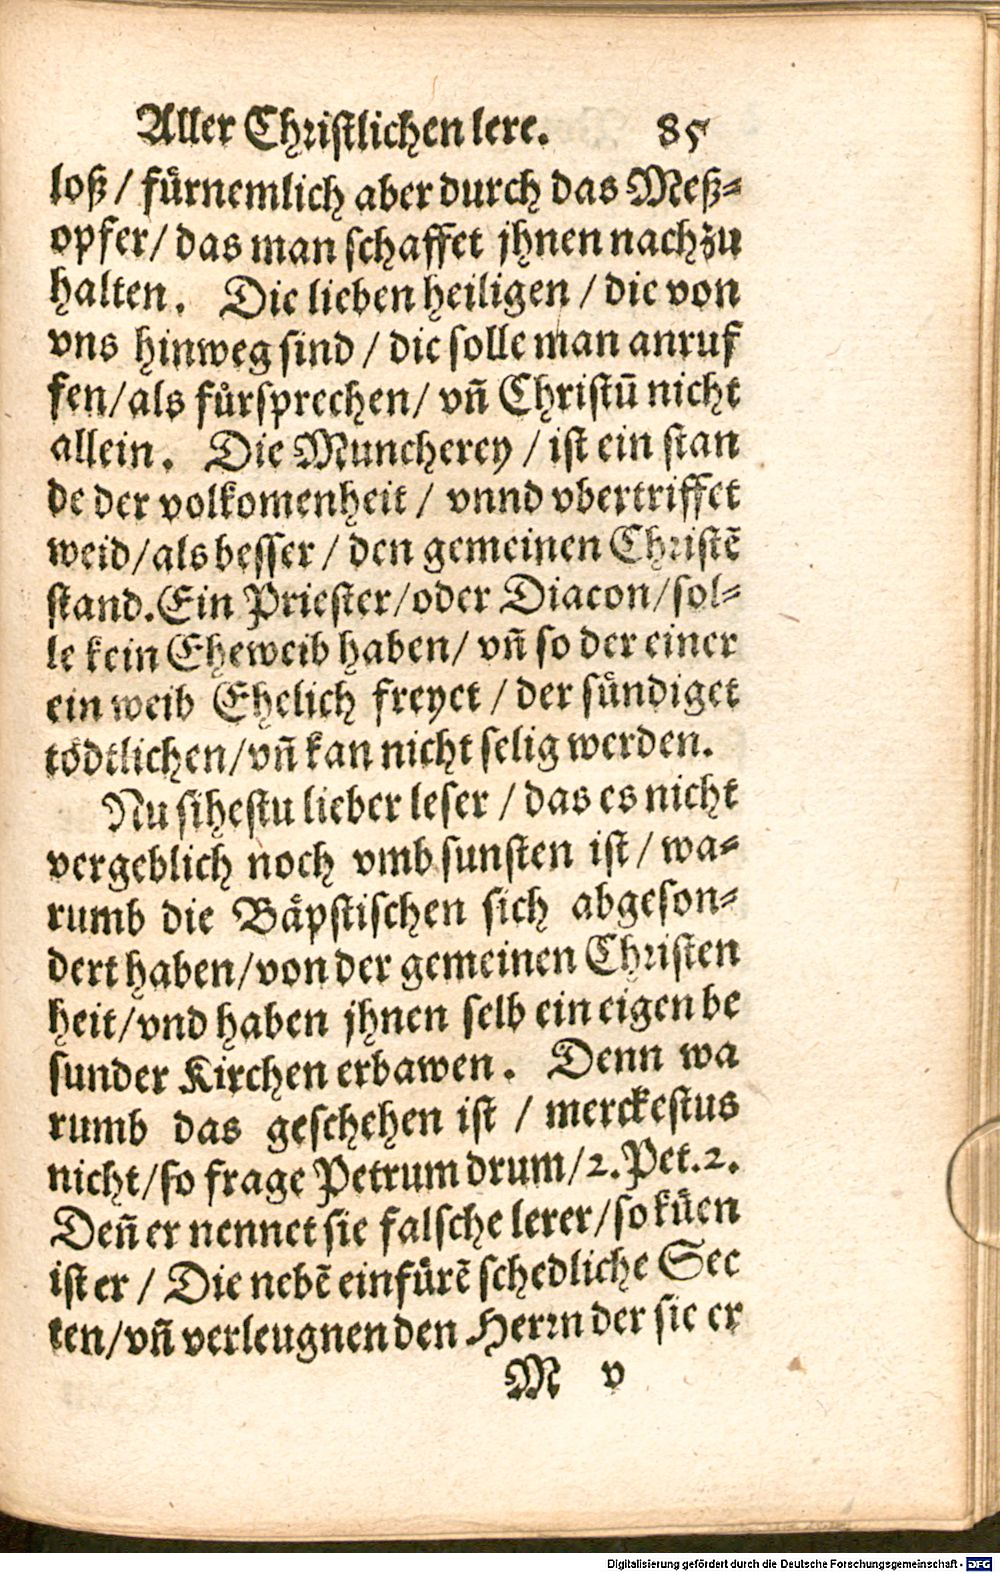 Aller Christlichen lere. 85
loß / fürnemlich aber durch das Meß⸗
opfer/ das man schaffet jhnen nachzu
halten. Die lieben heiligen / die von
vns hinweg sind / die solle man anruf
fen/als fürsprechen/ vñ Christū nicht
allein. Die Muncherey / ist ein stan
de der volkomenheit / vnnd vbertriffet
weid/als besser / den gemeinen Christē
stand. Ein Priester/oder Diacon/sol⸗
le kein Eheweib haben/ vñ so der einer
ein weib Ehelich freyet / der sündiget
tödtlichen/vñ kan nicht selig werden.
Nu sihestu lieber leser / das es nicht
vergeblich noch vmb sunsten ist / wa⸗
rumb die Bäpstischen sich abgeson⸗
dert haben/von der gemeinen Christen
heit/vnd haben jhnen selb ein eigen be
sunder Kirchen erbawen. Denn wa
rumb das geschehen ist / merckestus
nicht/so frage Petrum drum/2. Pet. 2.
Deñ er nennet sie falsche lerer/so küen
ist er / Die nebē einfürē schedliche Sec
ten/vñ verleugnen den Herrn der sie er
M v
Digitalisierung gefördert durch die Deutsche Forschungsgemeinschaft - DFG